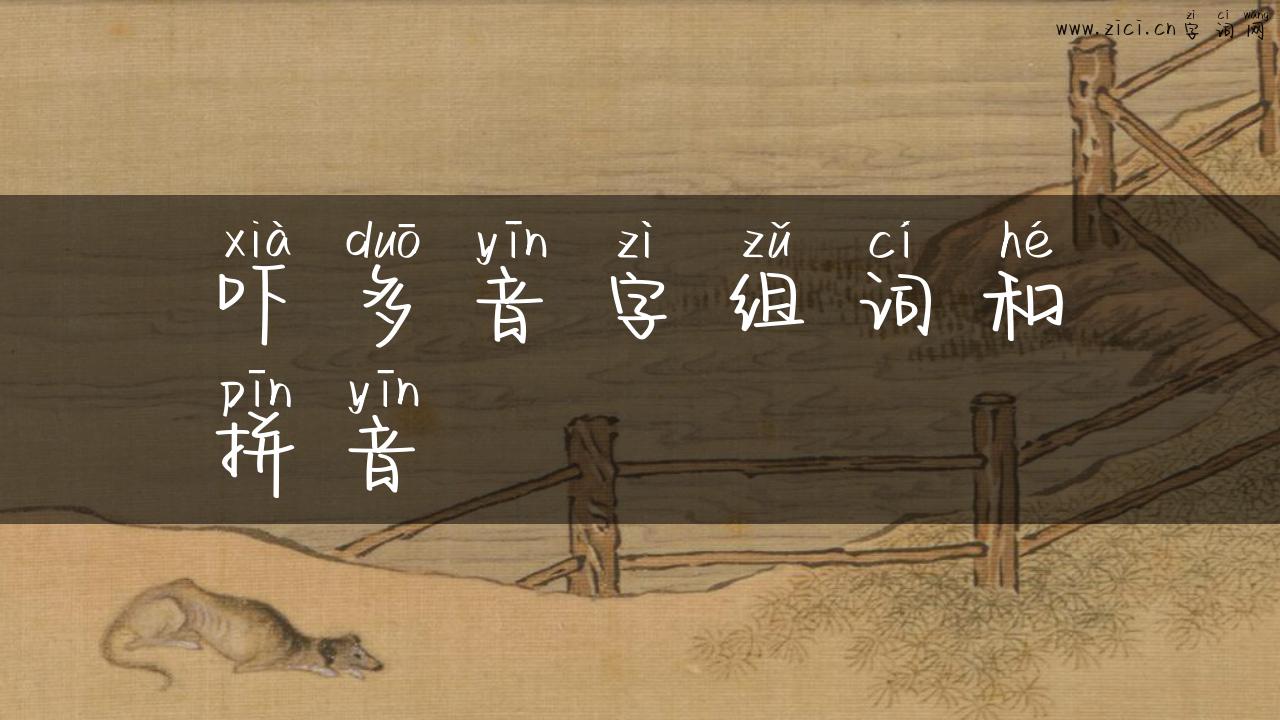 zì cí wǎng
www.zici.cn字词网
xià duō yīn zì zǔ cí hé
吓多音字组词和
pīn yīn
拼音